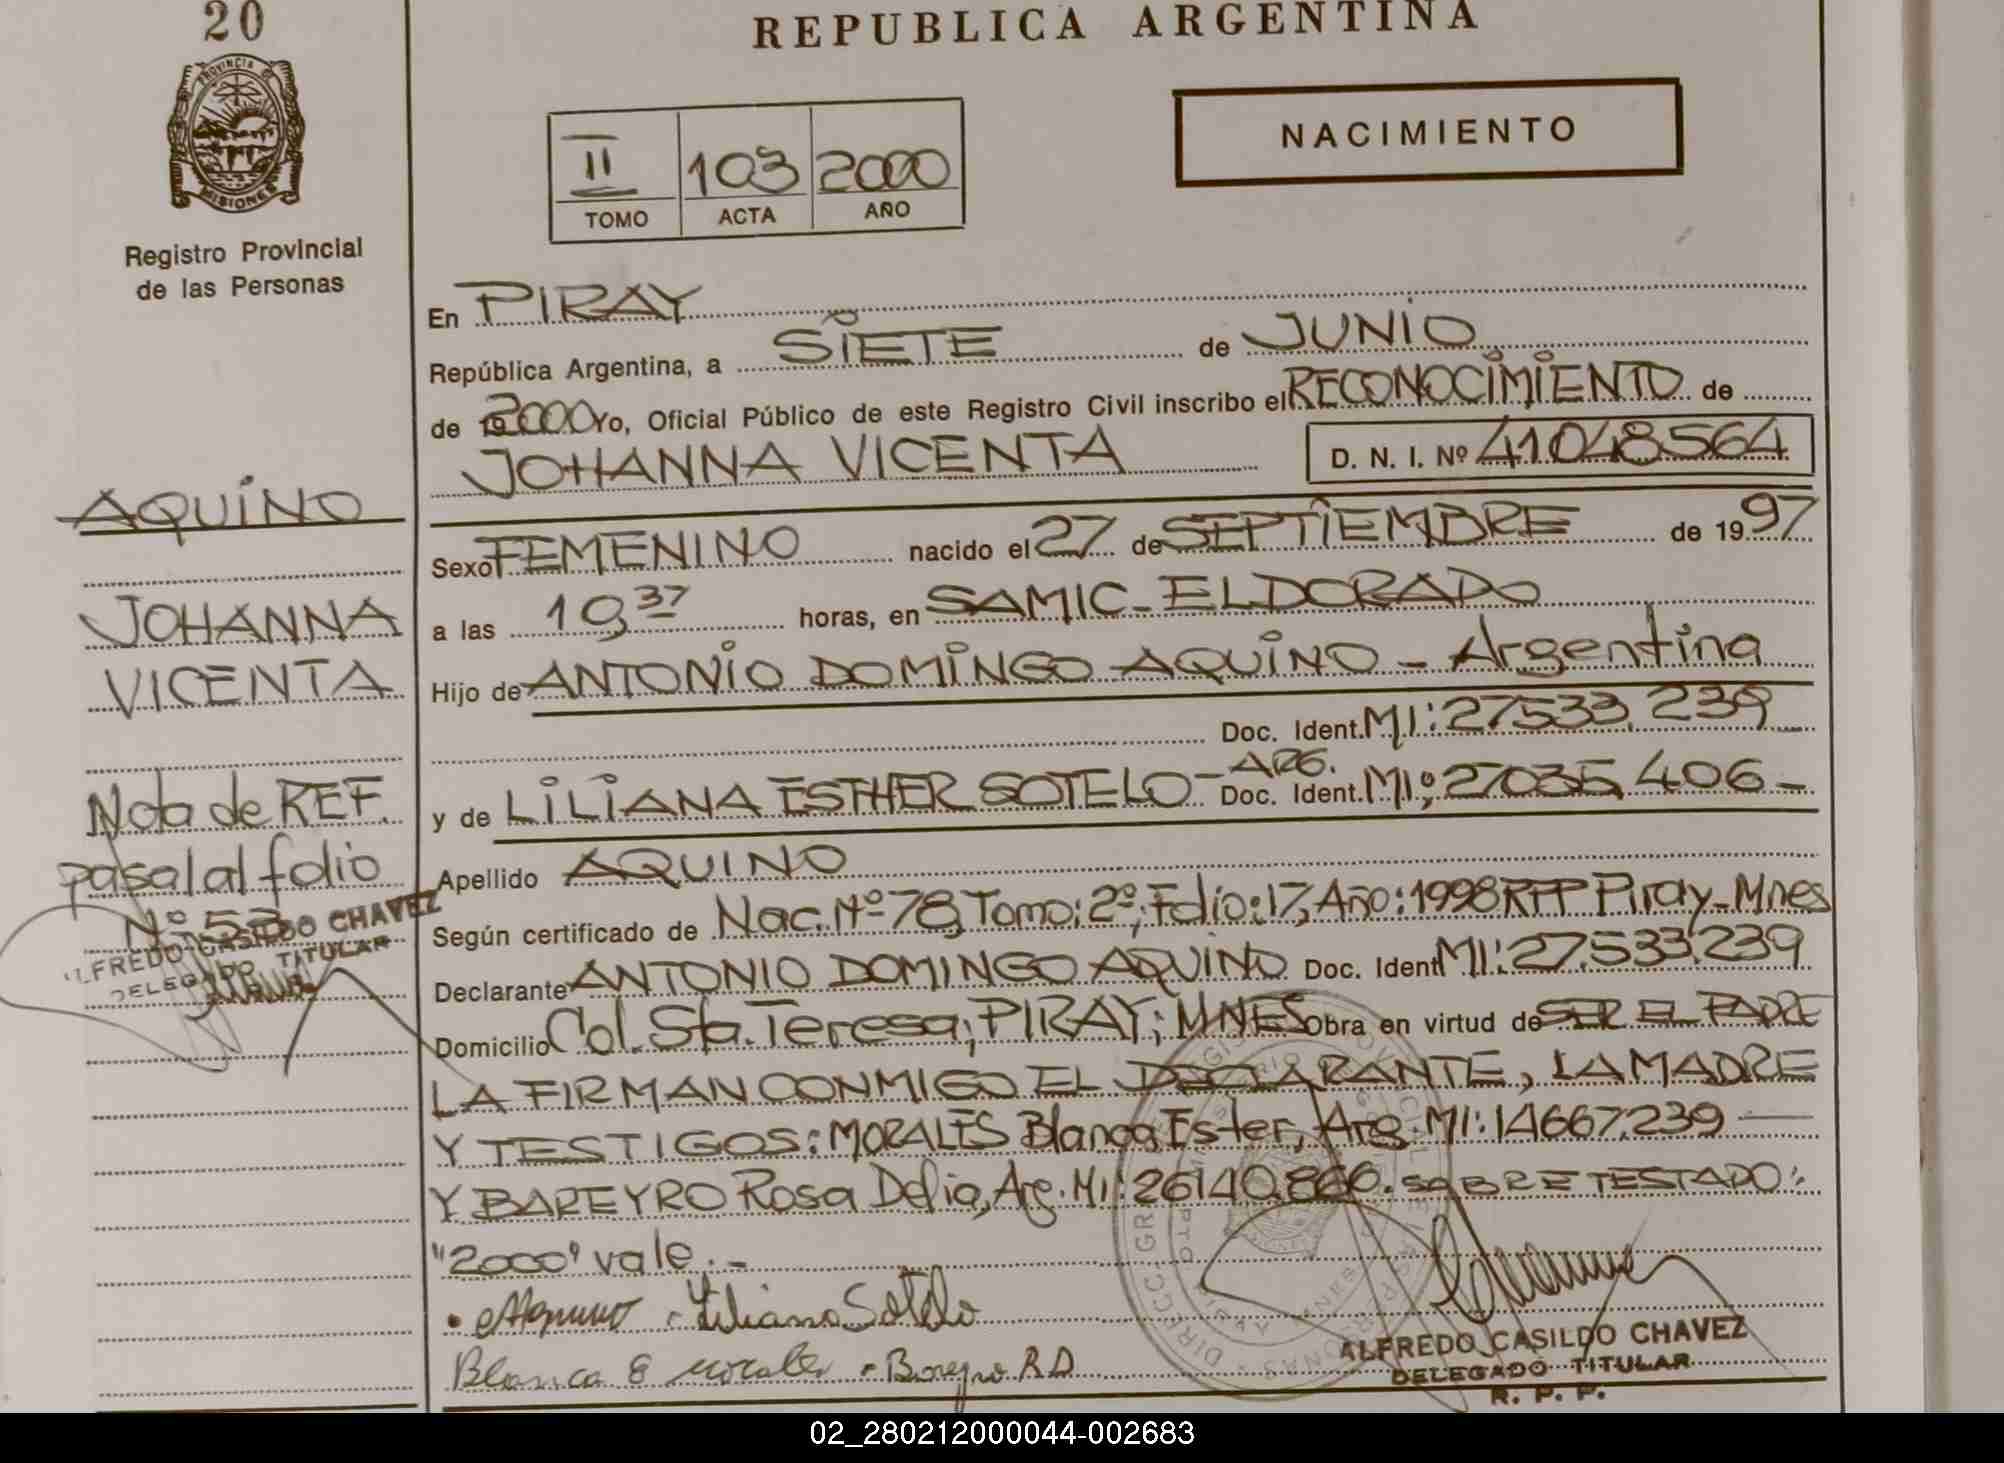 20
REPUBLICA ARGENTINA
PROVINCIA DE
MISIONES
Registro Provincial
de las Personas
II 103 2000
TOMO ACTA AÑO
NACIMIENTO
En PIRAY
República Argentina, a SIETE de JUNIO
de 2000 Yo, Oficial Público de este Registro Civil inscribo el RECONOCIMIENTO de
JOHANNA VICENTA D. N. I. Nº 41048564
AQUINO
JOHANNA
VICENTA
Nota de REF.
pasa al folio
Nº 53
ALFREDO CASILDO CHAVEZ
DELEGADO TITULAR
Sexo FEMENINO nacido el 27 de SEPTIEMBRE de 1997
a las 19,37 horas, en SAMIC-ELDORADO
Hijo de ANTONIO DOMINGO AQUINO - Argentina
Doc. Ident. MI: 27533.239
y de LILIANA ESTHER SOTELO - ARG. Doc. Ident. MI; 27035,406 -
Apellido AQUINO
Según certificado de Nac. Nº 78, Tomo: 2º; Folio: 17, Año: 1998 RPP Piray-Mnes
Declarante ANTONIO DOMINGO AQUINO Doc. Ident MI: 27.533.239
Domicilio Col. Sta. Teresa; PIRAY; MNES Obra en virtud de SER EL PADRE
LA FIRMAN CONMIGO EL DECLARANTE, LA MADRE
Y TESTIGOS: MORALES Blanca Ester, Arg. MI: 14667.239
Y BAREYRO Rosa Delia, Arg. MI: 26140.866. SOBRE TESTADO:
"2000" vale. -
Liliana Sotelo
Blanca E Morales - Bareyro R D
ALFREDO CASILDO CHAVEZ
DELEGADO TITULAR
R. P. P.
02_280212000044-002683